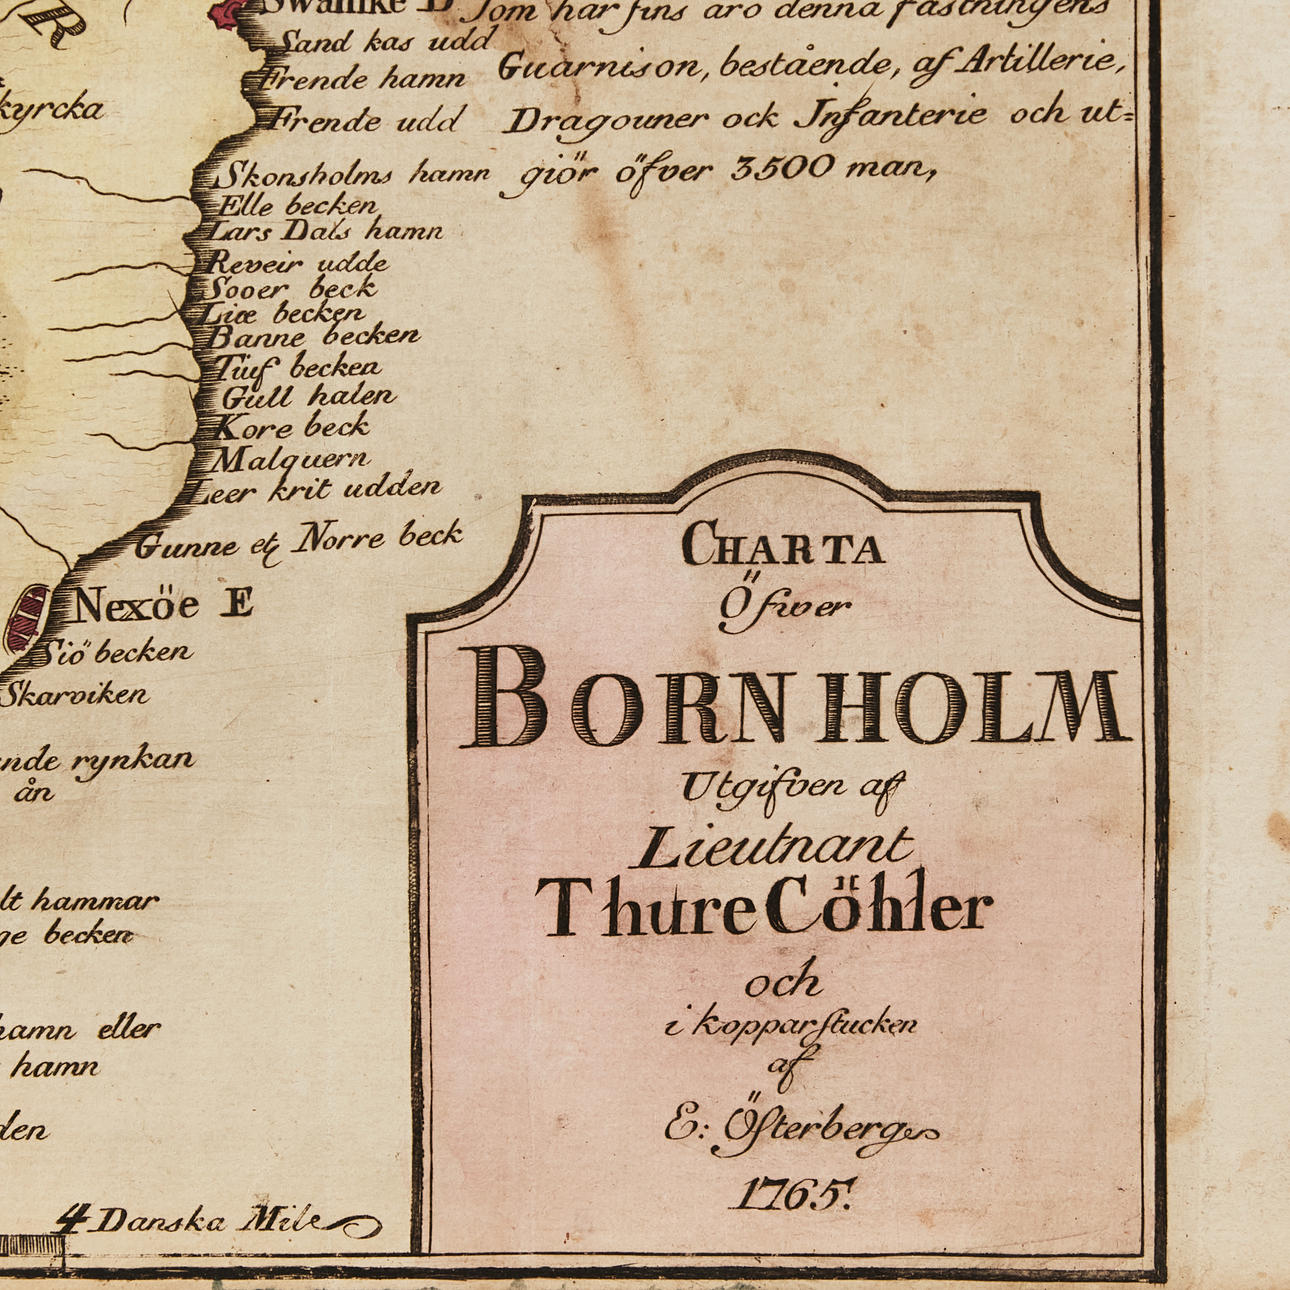 R
Swanike D
Som här fins äro denna fästningens
Sand kas udd
Guarnison, bestående, af Artillerie,
Frende hamn
kyrcka
Frende udd
Dragouner ock Infanterie och ut=
giör öfver 3500 man,
Skonsholms hamn
Elle becken
Lars Dals hamn
Reveir udde
Sooer beck
Liæ becken
Banne becken
Tüuf becken
Gull halen
Kore beck
Malquern
Leer krit udden
Gunne et Norre beck
Nexöe E
Siö becken
Skarviken
nde rynkan
ån
lt hammar
ge becken
hamn eller
hamn
den
4 Danska Mile
CHARTA
Öfwer
BORNHOLM
Utgifven af
Lieutnant
Thure Cöhler
och
i kopparstucken
af
E: Österberg
1765.